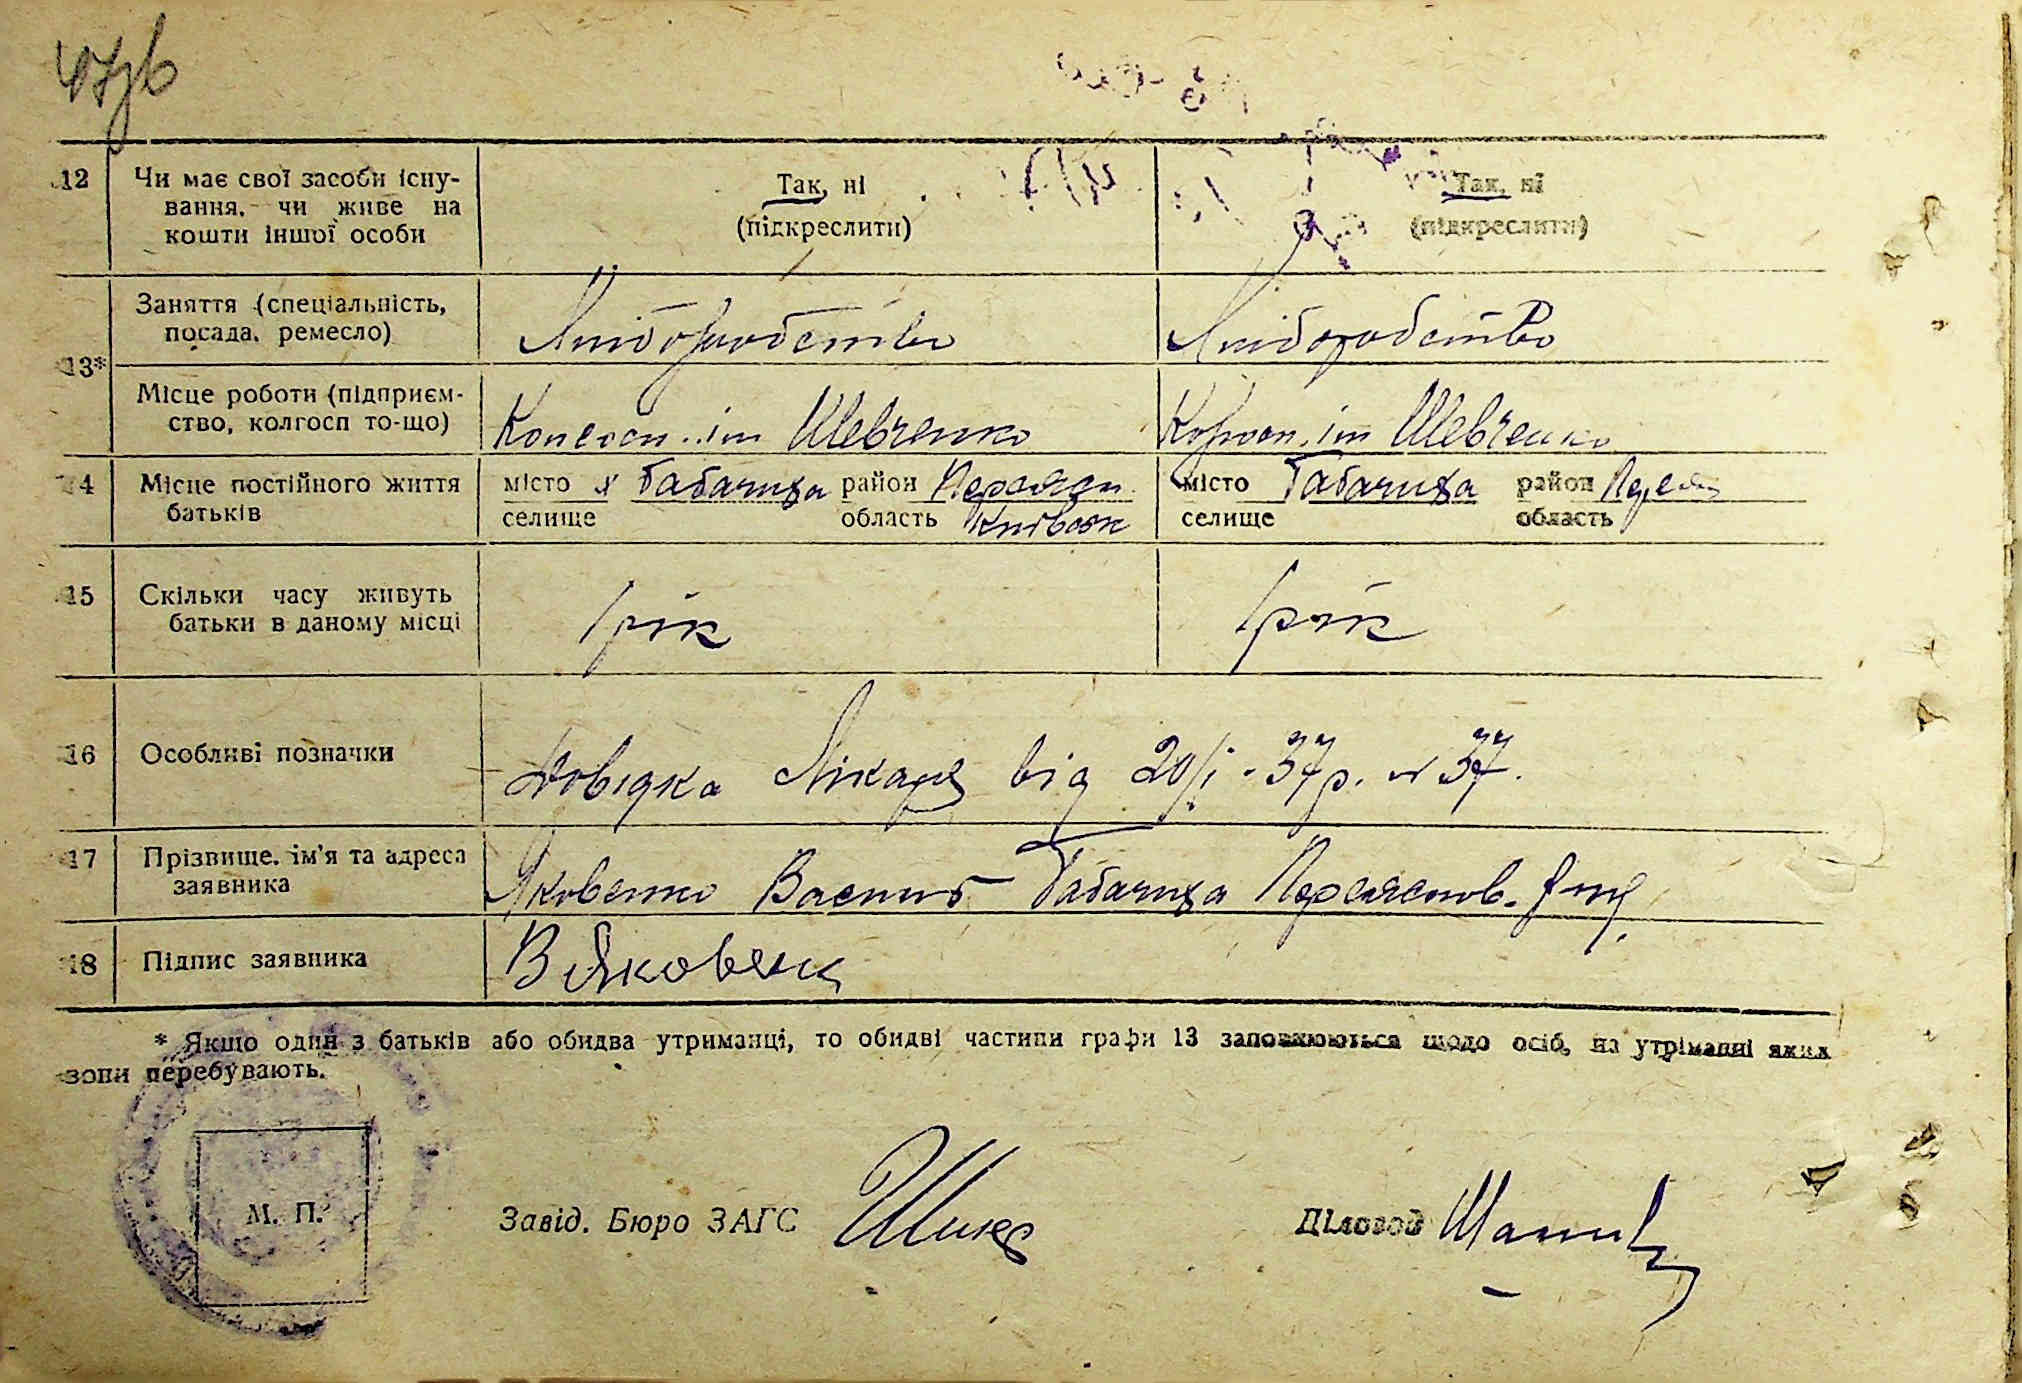 12 Чи має свої засоби існу- Так, ні Так, ні
вання, чи живе на (підкреслити) (підкреслити)
кошти іншої особи
Заняття (спеціальність, Хліборобство Хліборобство
посада, ремесло)
13*
Місце роботи (підприєм- Шевченко Шевченко
ство, колгосп то-що) ім ім
14 Місце постійного життя місто х Бабачиха район місто Бабачиха район
батьків селище область Київськ селище область
15 Скільки часу живуть 1 рік 1 рік
батьки в даному місці
16 Особливі позначки Довідка Лікаря від 20/I-37р. № 37.
17 Прізвище, ім'я та адреса Яковенко Василь
заявника
18 Підпис заявника В Яковенк
* Якщо один з батьків або обидва утриманці, то обидві частини графи 13 заповнюються щодо осіб, на утріманні яких
вони перебувають.
М. П. Завід. Бюро ЗАГС Діловод